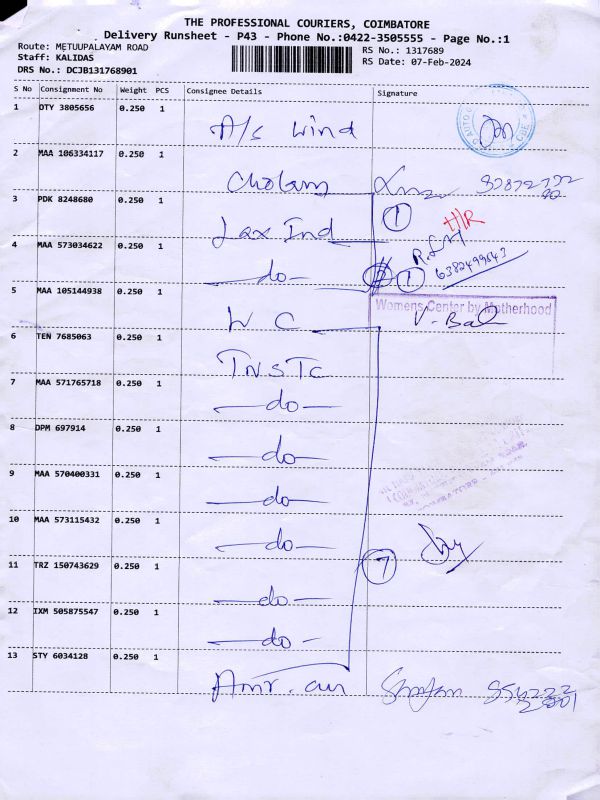 THE PROFESSIONAL COURIERS, COIMBATORE
Delivery Runsheet - P43 - Phone No.:0422-3505555 - Page No.:1
Route: METUUPALAYAM ROAD
Staff: KALIDAS
DRS No.: DCJB131768901
RS No.: 1317689
RS Date: 07-Feb-2024
S No Consignment No Weight PCS Consignee Details Signature
1 DTY 3805656 0.250 1 A/s Wind
2 MAA 106334117 0.250 1 Cholam
3 PDK 8248680 0.250 1 Lax Ind 1
4 MAA 573034622 0.250 1 —do— 1 6382499643
5 MAA 105144938 0.250 1 W C
Womens Center by Motherhood
6 TEN 7685063 0.250 1 TNSTC
7 MAA 571765718 0.250 1 —do—
8 DPM 697914 0.250 1 —do—
9 MAA 570400331 0.250 1 —do—
10 MAA 573115432 0.250 1 —do—
11 TRZ 150743629 0.250 1 —do— 7
12 IXM 505875547 0.250 1 —do—
13 STY 6034128 0.250 1